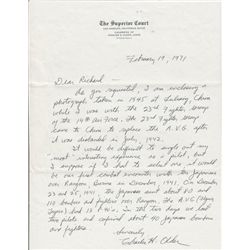 The Superior Court
February 19, 1971
Dear Richard —
As you requested, I am enclosing a
photograph taken in 1945 at Luliang, China
while I was with the 23rd Fighter Group
of the 14th Air Force. The 23rd Fighter Group
came to China to replace the A.V.G. after
it was disbanded in July, 1942.
It would be difficult to single out my
most interesting experience as a pilot, but
I suppose if I had to select one it would be
our first combat encounter with the Japanese
over Rangoon, Burma in December, 1941. On December
23 and 25, 1941, the Japanese sent about 80 and
110 bombers and fighters over Rangoon. The A.V.G. (Flying
Tigers) had 15 P-40's. In the two days we lost
two pilots and downed about 40 Japanese bombers
and fighters.
Sincerely,
Charles H. Older